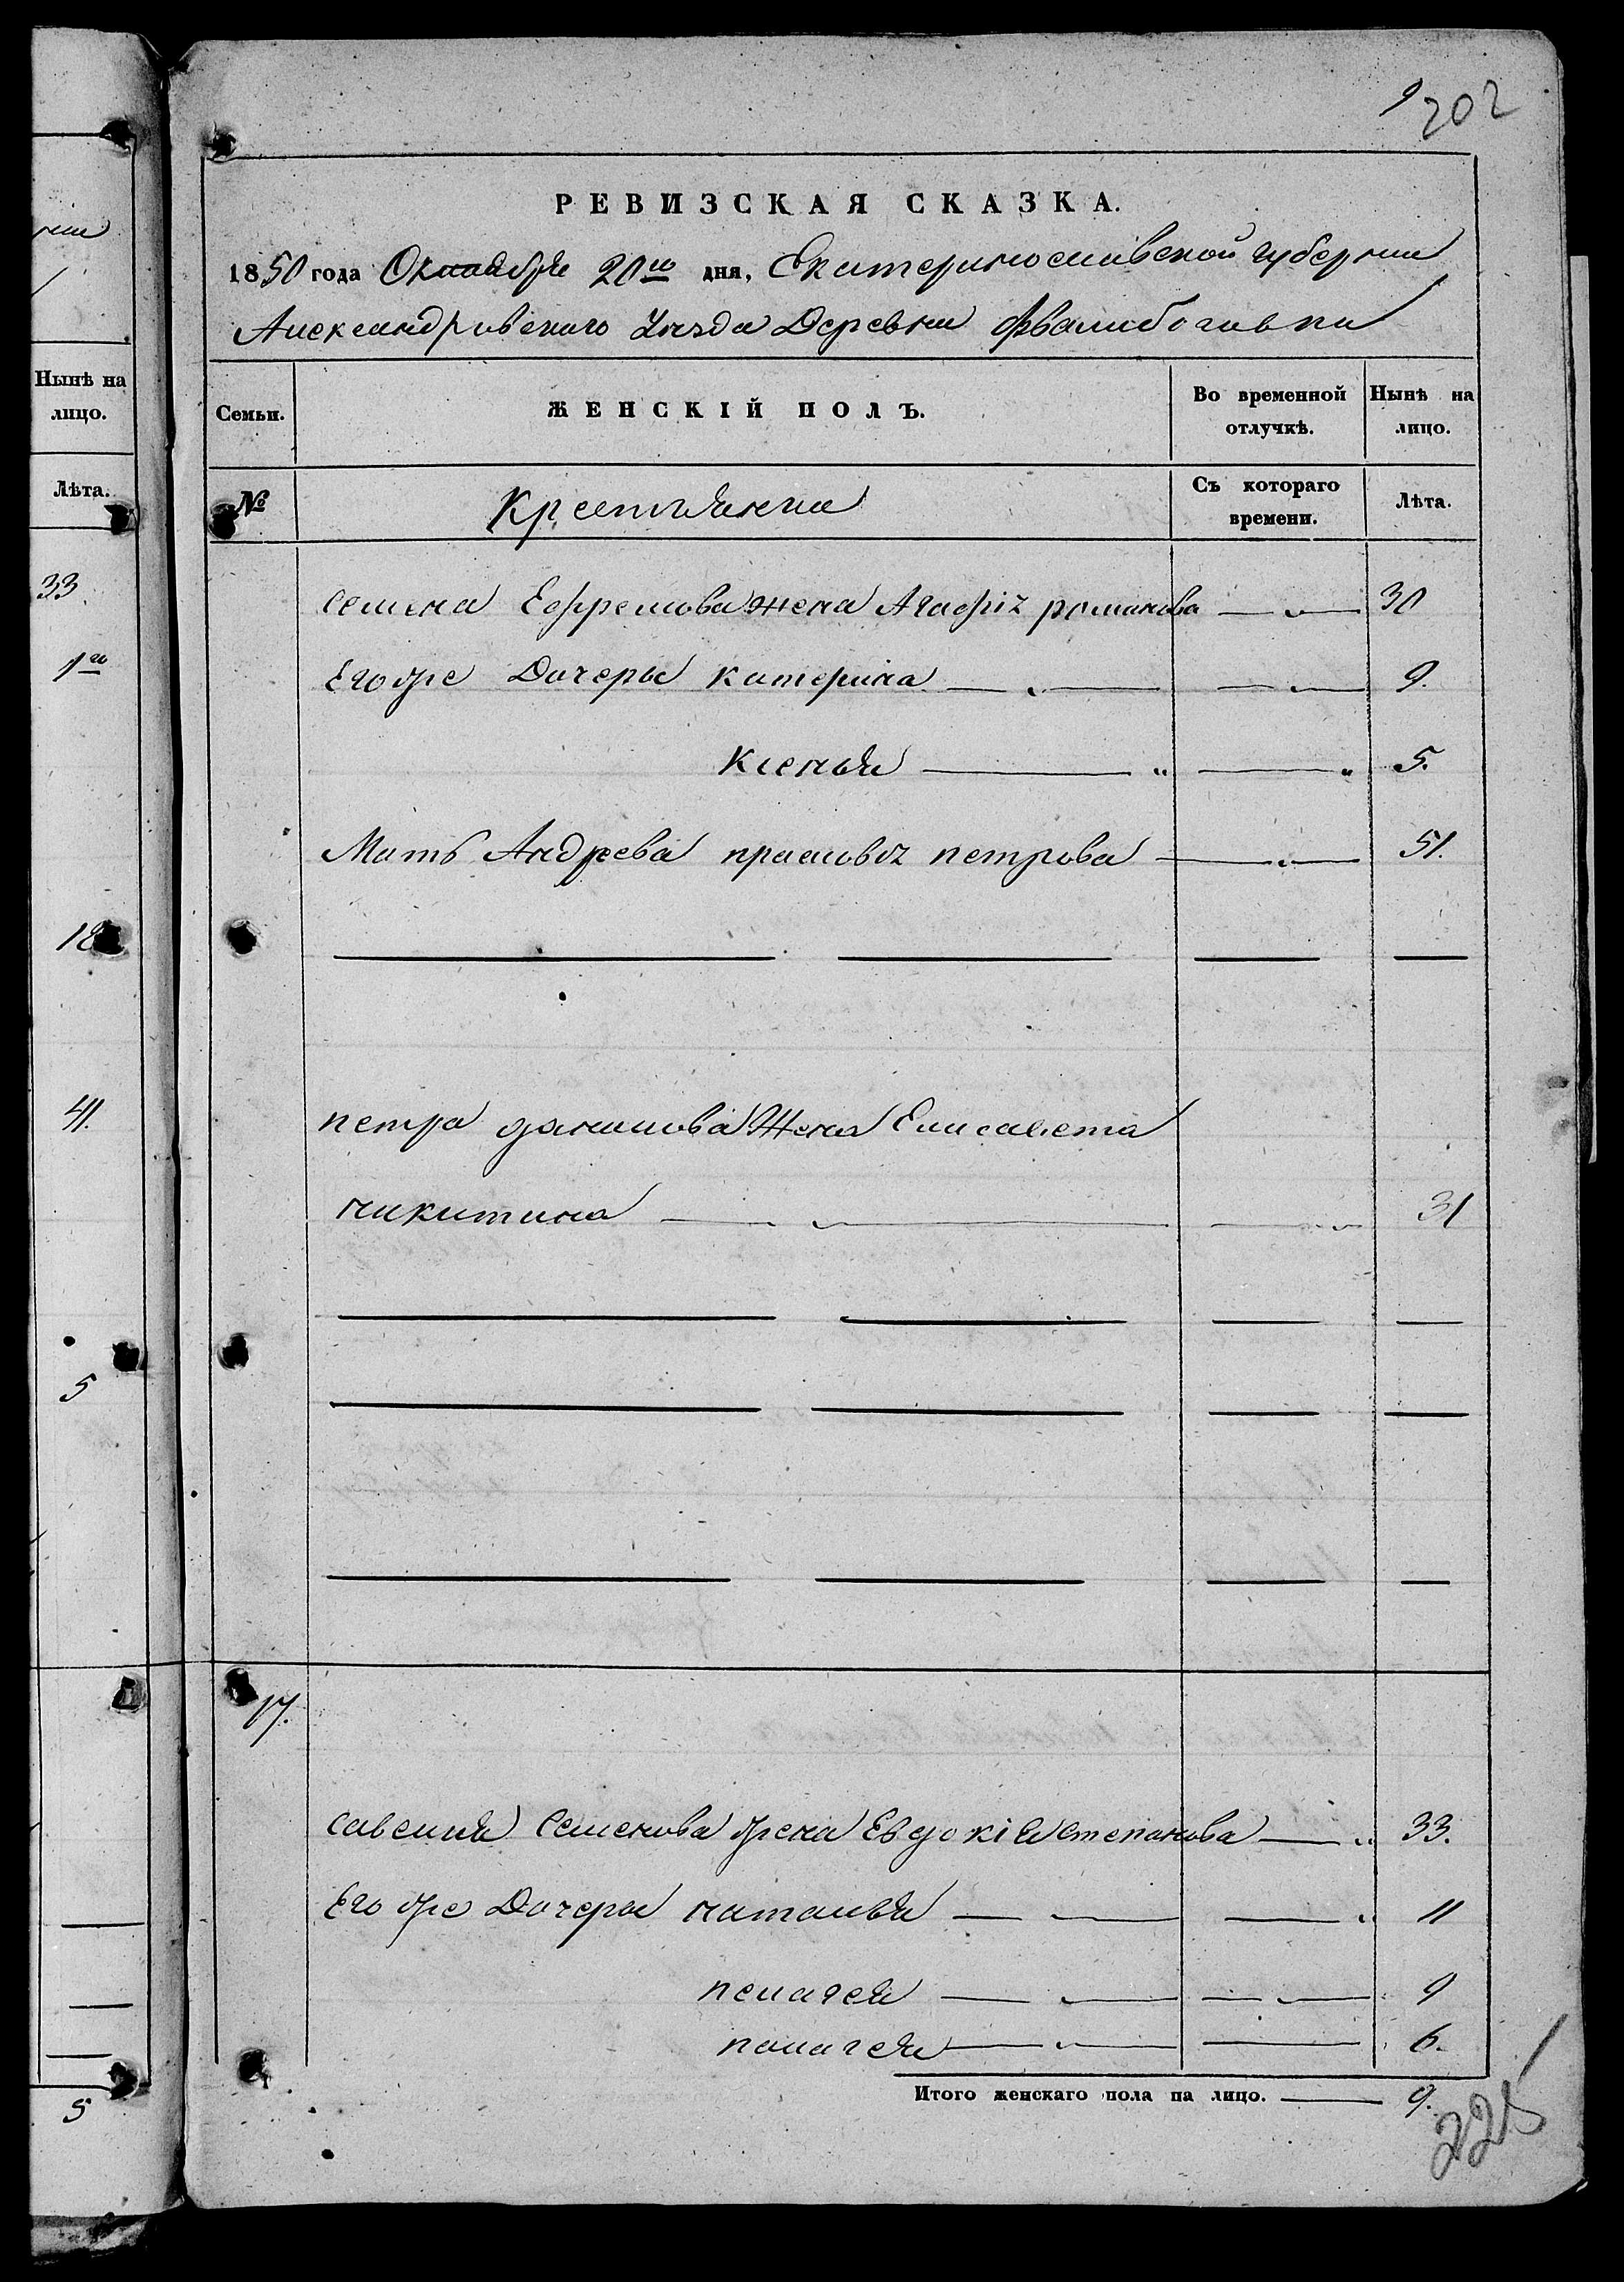 9
202
РЕВИЗСКАЯ СКАЗКА.
1850 года Октября 20го дня, Екатеринославской губернии
Александровскаго Уезда Деревни Фвалибоговки
Семьи.
ЖЕНСКІЙ ПОЛЪ.
Во временной отлучкѣ.
Нынѣ на лицо.
№
Крестьяне
Съ котораго времени.
Лѣта.
Семена Ефремова жена Агафія романова 30
Егоже Дочеры катерина 9.
Ксенья 5.
Мать Андреева прасковія петрова 51.
петра данилова Жена Елисавета
никитина 31
17.
Савелия Семенова жена Евдокія Степанова 33.
Егоже Дочеры наталья 11
пелагея 9
палагея 6.
Итого женскаго пола на лицо. 9.
225
Нынѣ на
лицо.
Лѣта.
33
1го
18
41.
5
5